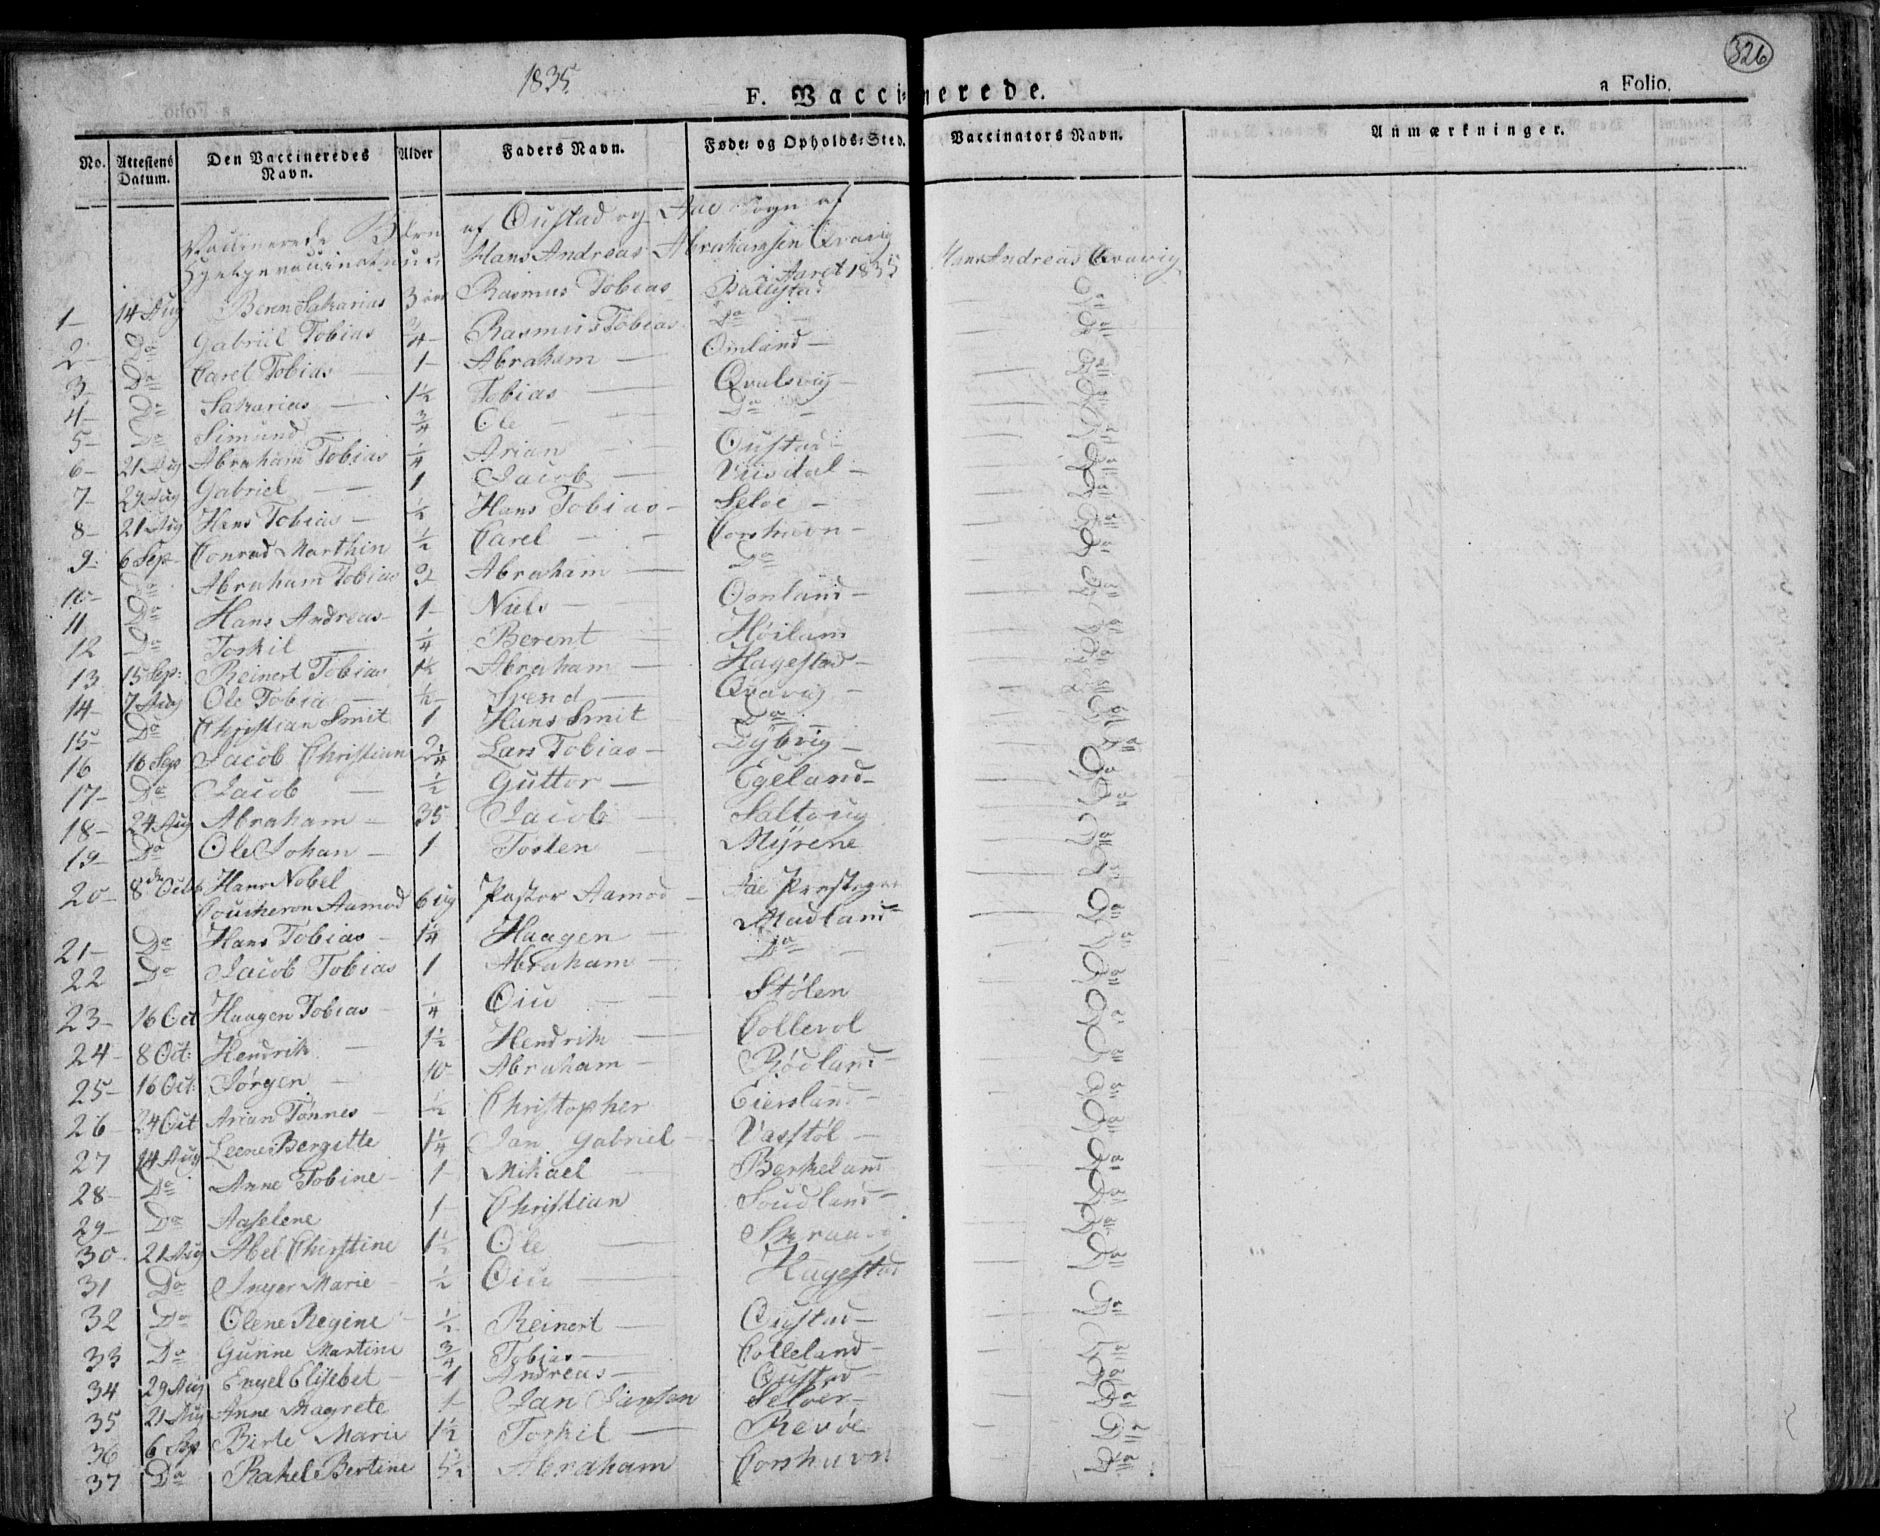 326
1835.
F. Vaccinerede.
a Folio.
No. Attestens Datum. Den Vaccineredes Navn. Alder Faders Navn. Føde- og Opholds-Sted. Vaccinators Navn. Anmærkninger.
Vaccinerede Børn af Oustad og Aae Sogn af
Hans Andreas Abrahamsen Qvavig
Aaret 1835
Hans Andreas Qvavig
1- 14 Aug Beren Sakarias 3 Rasmus Tobias
2- Do Gabriel Tobias 3/4 Rasmus Tobias Do Do
3- Do Carel Tobias 1- Abraham Omland Do
4- Do Sakarias 1½ Tobias Qvalsvig Do
5- Do Simund 3/4 Ole Do Do
6- 21 Aug Abraham Tobias 1/4 Arian Oustad Do
7- 29 Aug Gabriel 1 Jacob Do
8- 21 Aug Hans Tobias ½ Hans Tobias Seloe Do
9- 6 Sep Conrad Marthin ½ Carel Corshavn Do
10- Do Abraham Tobias Abraham Do Do
11 Do Hans Andreas 1- Niels Omland Do
12 Do Torkil 1/4 Berent Høiland Do
13 15 Sep: Reinert Tobias Abraham Hagestad Do
14- 7 Aug Ole Tobias ½ Svend Qvavig Do
15- Do Christian Smit 1 Hans Smit Do Do
16 16 Sep Jacob Christian Lars Tobias Do
17- Do Jacob ½ Guttor Egeland Do
18- 24 Aug Abraham 35 Jacob Do
19- Do Ole Johan 1 Tosten Myrene Do
20- 8de Octb Hans Nobel
Coucheron Aamod 6 ug Pastor Aamod Aae Do
21- Do Hans Tobias 1¼ Haagen Madland Do
22 Do Jacob Tobias 1 Abraham Do Do
23- 16 Oct Haagen Tobias 1/4 Stølen Do
24- 8 Oct: Hendrik 1½ Hendrik Collevol Do
25- 16 Oct: Jørgen 10 Abraham Rødland Do
26- 24 Oct Arian Tønnes ½ Christopher Eiersland Do
27 14 Aug Leene Bergitte 1¼ Jan Gabriel Vasstøl Do
28- Do Anne Tobine 1 Mikael Berkeland Do
29- Do Aaselene 1- Christian Soudland Do
30- 21 Aug Abel Christine 1½ Ole Do
31 Do Inger Marie ½ Hagestad Do
32 Do Olene Regine ½ Reinert Oustad Do
33 Do Gunne Martine 3/4 Tobias Colleland Do
34 29 Aug Engel Elisebet 1 Andreas Oustad Do
35 21 Aug Anne Magrete 1 Jan Jansen Seloer Do
36 6 Sep Birte Marie 1½ Torkil Revøe Do
37 Do Rakel Bertine 5½ Abraham Corshavn Do